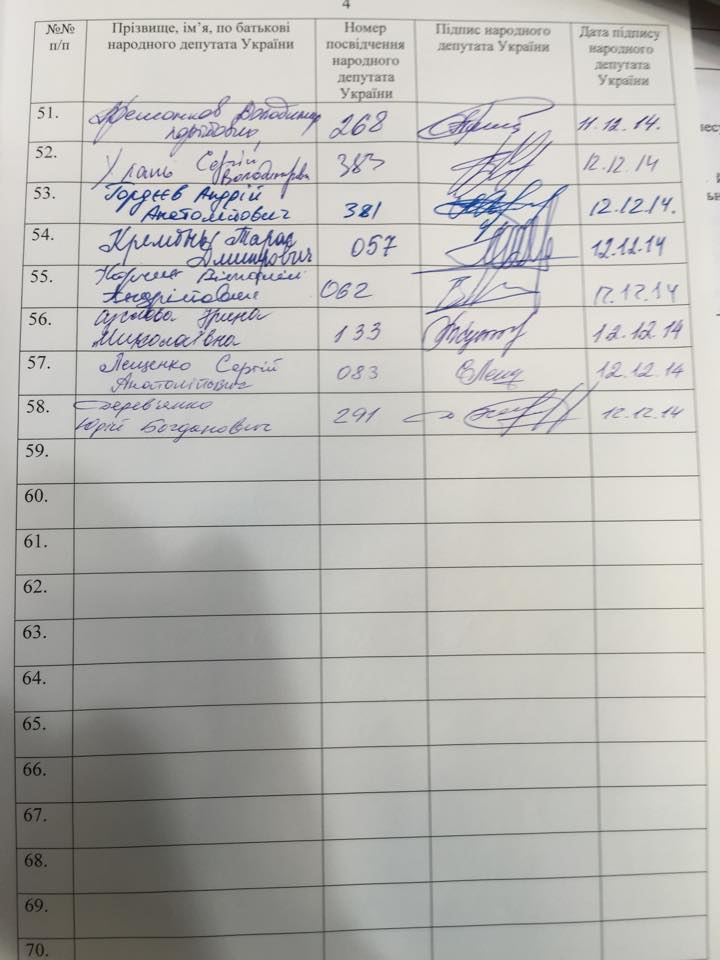 4
№№ п/п
Прізвище, ім’я, по батькові народного депутата України
Номер посвідчення народного депутата України
Підпис народного депутата України
Дата підпису народного депутата України
51.
Володимир
268
11.12.14.
52.
Сергій
Володимирович
383
12.12.14
53.
Гордєєв Андрій
Анатолійович
381
12.12.14.
54.
Тарас
Дмитрович
057
12.12.14
55.
Андрійович
062
12.12.14
56.
Суслова Ірина
Миколаївна
133
12.12.14
57.
Лещенко Сергій
Анатолійович
083
12.12.14
58.
Дерев'янко
Юрій Богданович
291
12.12.14
59.
60.
61.
62.
63.
64.
65.
66.
67.
68.
69.
70.